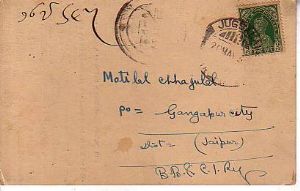 JUG
20 MA
Motilal Chhajulal
po = Gangapur city
dist = (Jaipur)
B.B. & C.I. Rly